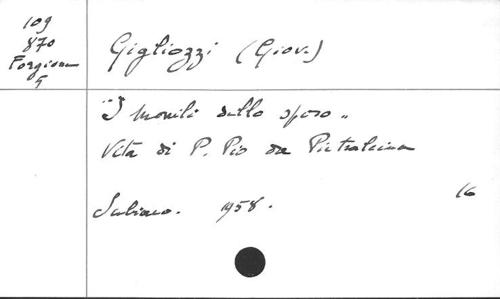 109
870
Forgione
5
Gigliozzi (Giov.)
"I monili dello sposo"
Vita di P. Pio da Pietralcina
Subiaco. 1958.
16